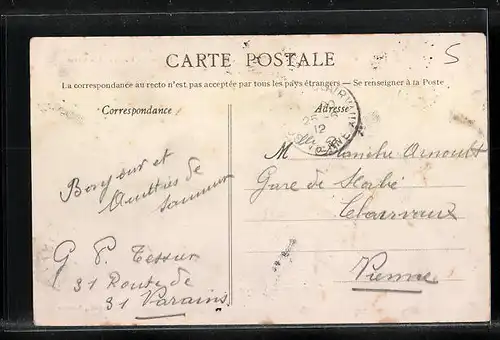 CARTE POSTALE
5
La correspondance au recto n'est pas acceptée par tous les pays étrangers — Se renseigner à la Poste
Correspondance
Adresse
Bonjour et
Amitiés de
Saumur
G P. Tessier
31 Route de
31 Varains
M Blanche Arnoult
Gare de
Vienne